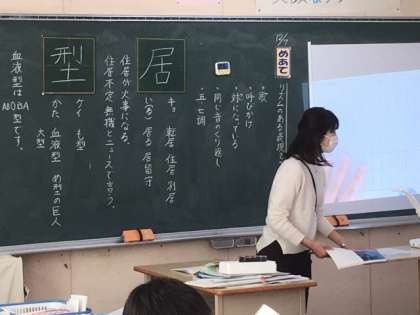 12/7
めあて
リズムのある表現を
・歌
・呼びかけ
・対になっている
・同じ音のくり返し
・五七調
居
キョ 転居 住居 別居
い(る) 居る 居留守
住居が火事になる。
住居不定無職とニュースで言う。
型
ケイ も型
かた 血液型 め型の巨人
大型
血液型はABO型です。